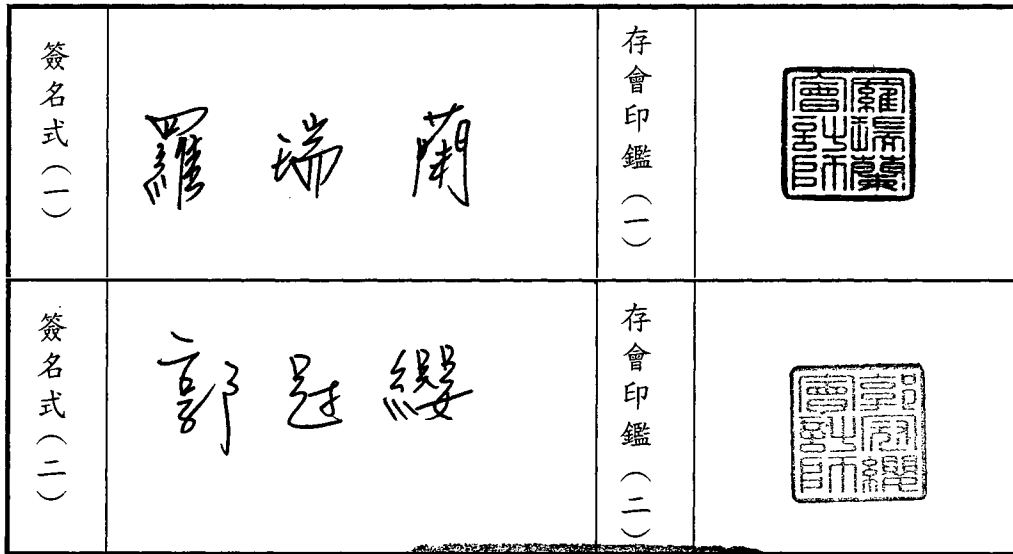 簽名式（一）
羅瑞蘭
存會印鑑（一）
羅瑞蘭會計師
簽名式（二）
郭冠纓
存會印鑑（二）
郭冠纓會計師